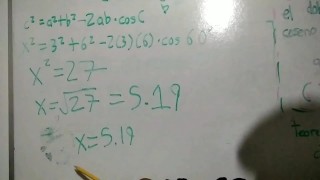 c²=a²+b²-2ab·cosC
x²=3²+6²-2(3)(6)·cos 60°
x²=27
x=√27=5.19
x=5.19
el dob
coseno